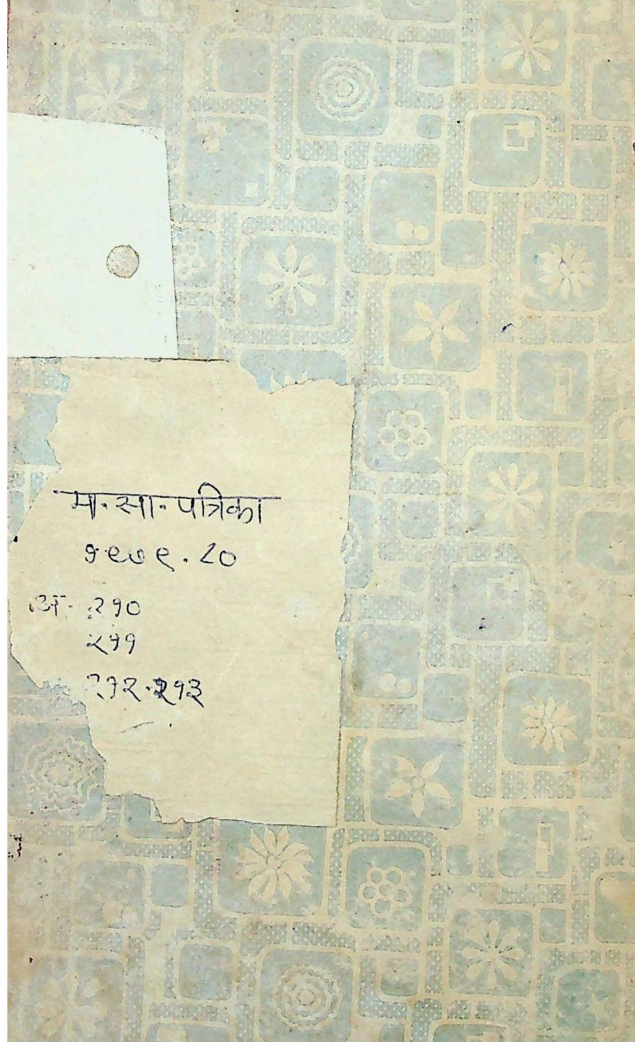 म. सा. पत्रिका
१९७९.८०
अं. २१०
२११
२१२.२१३